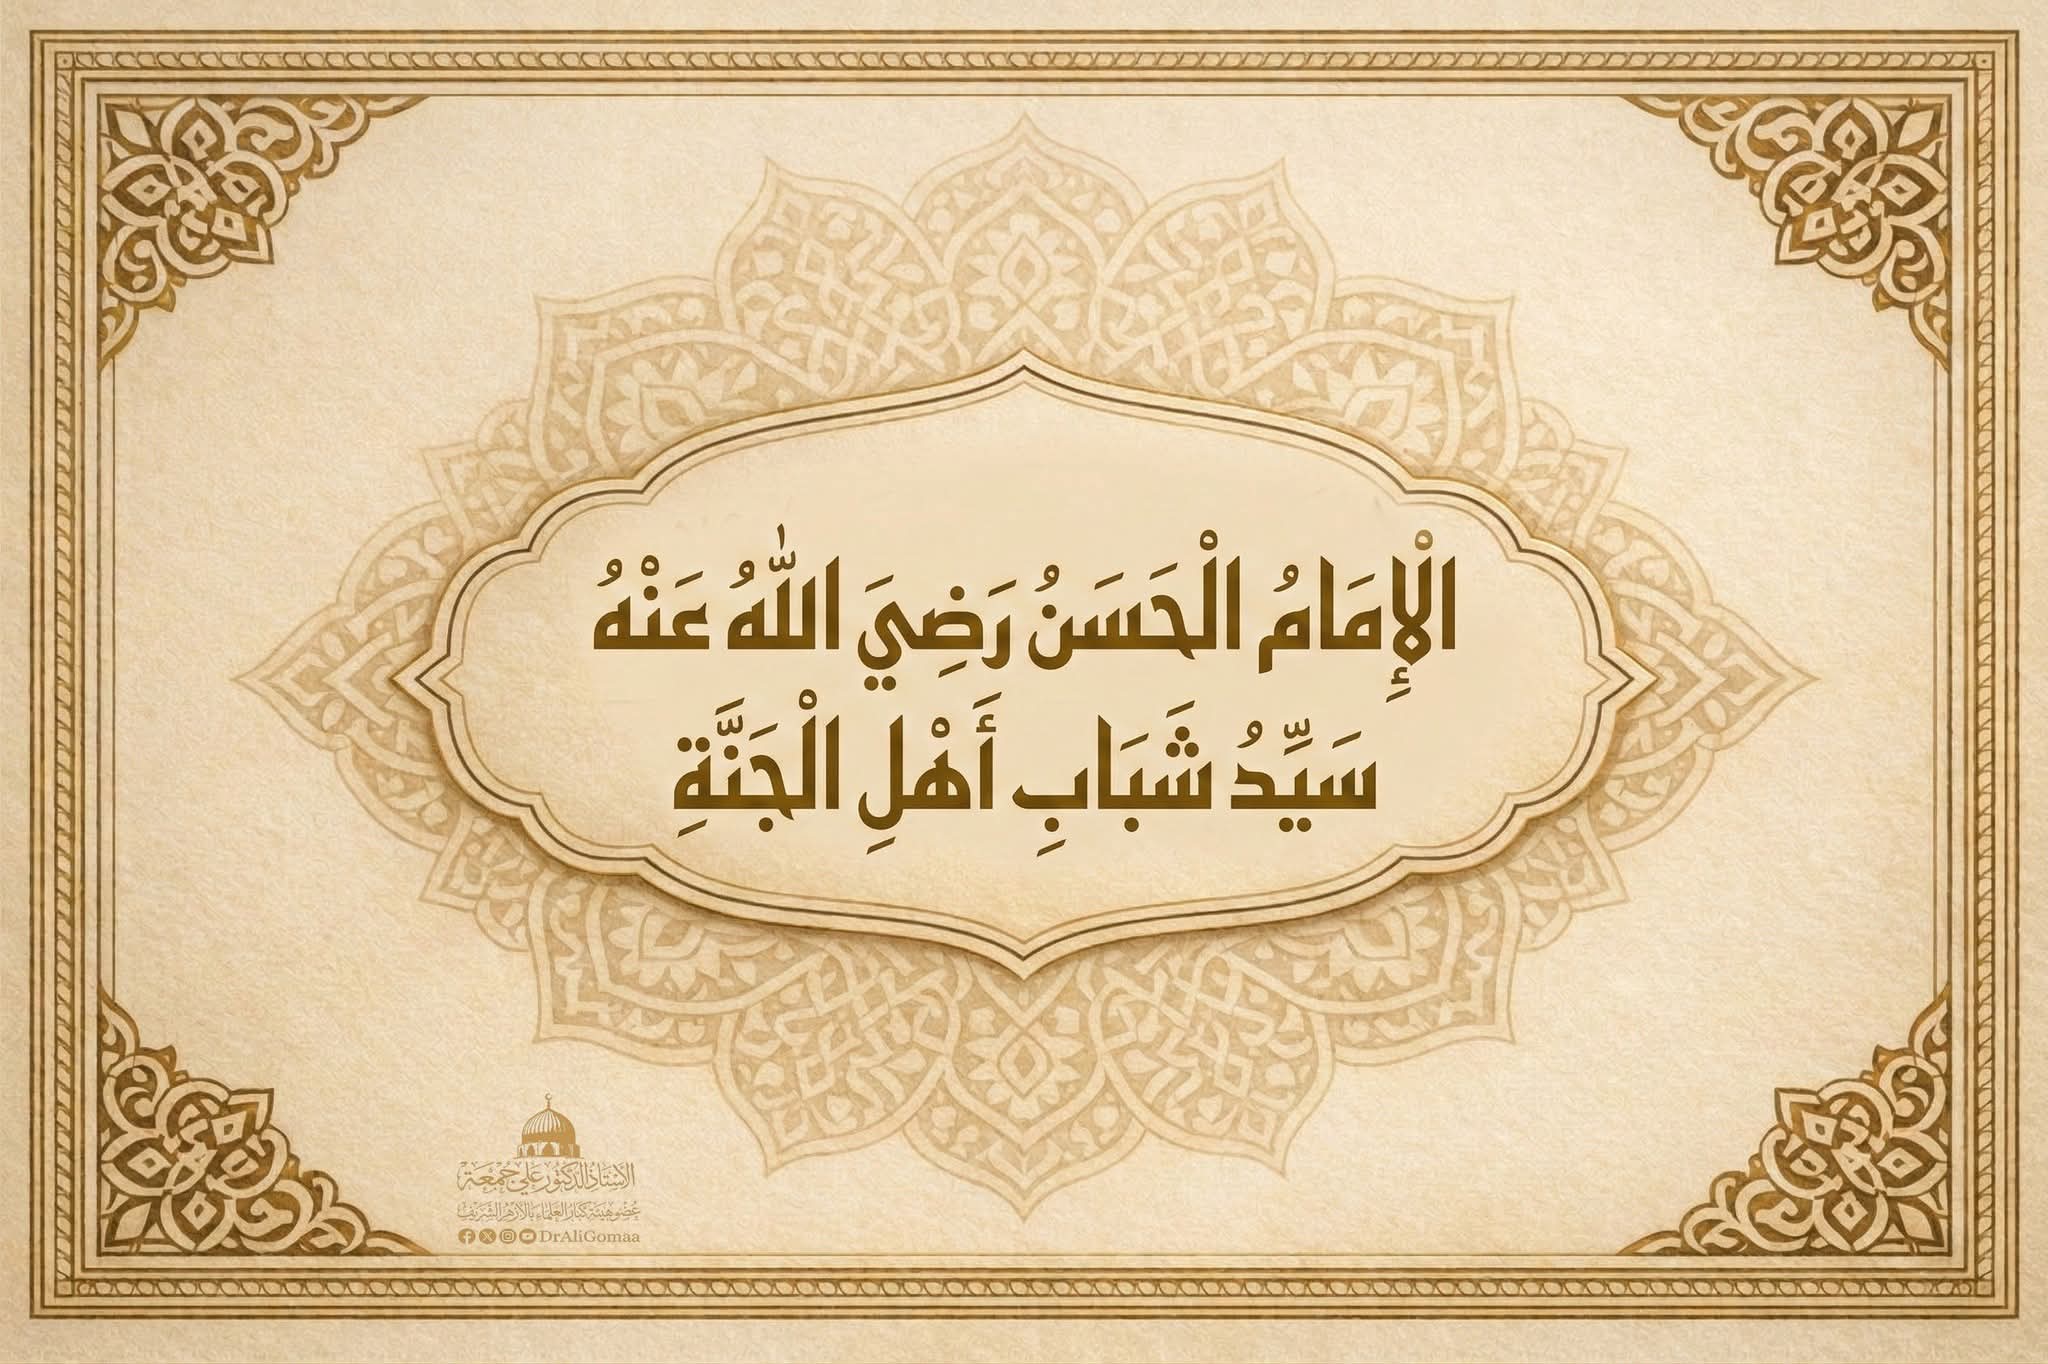 الْإِمَامُ الْحَسَنُ رَضِيَ اللّٰهُ عَنْهُ
سَيِّدُ شَبَابِ أَهْلِ الْجَنَّةِ
الأستاذ الدكتور علي جمعة
عضو هيئة كبار العلماء بالأزهر الشريف
DrAliGomaa